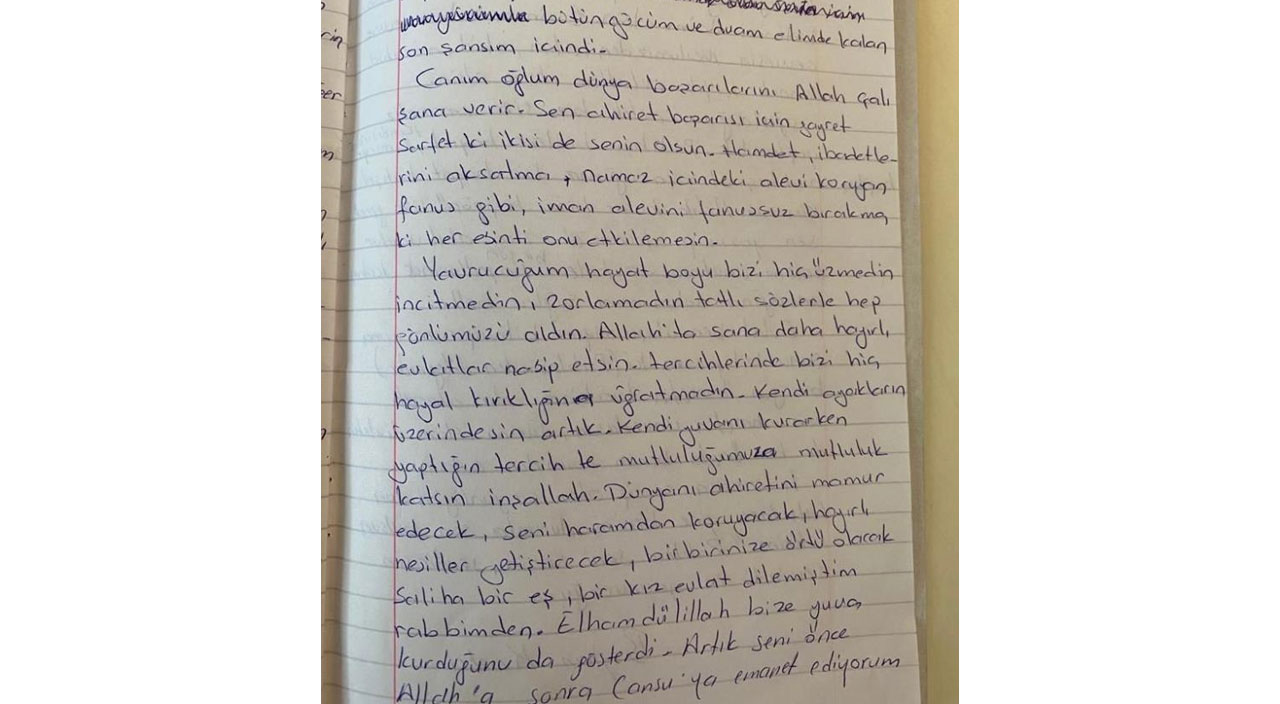 bütün gücüm ve duam elimde kalan
son şansım içindi.
Canım oğlum dünya başarılarını Allah çalı
şana verir. Sen ahiret başarısı için gayret
sarfet ki ikisi de senin olsun. Hamdet, ibadetle-
rini aksatma, namaz içindeki alevi koruyan
fanus gibi, iman alevini fanussuz bırakma
ki her esinti onu etkilemesin.
Yavrucuğum hayat boyu bizi hiç üzmedin
incitmedin, zorlamadın tatlı sözlerle hep
gönlümüzü aldın. Allah'ta sana daha hayırlı
evlatlar nasip etsin. tercihlerinde bizi hiç
hayal kırıklığına uğratmadın. Kendi ayakların
üzerindesin artık. Kendi yuvanı kurarken
yaptığın tercih te mutluluğumuza mutluluk
katsın inşallah. Dünyanı ahiretini mamur
edecek, seni haramdan koruyacak, hayırlı
nesiller yetiştirecek, birbirinize örtü olacak
Saliha bir eş, bir kız evlat dilemiştim
rabbimden. Elhamdülillah bize yuva
kurduğunu da gösterdi. Artık seni önce
Allah'a sonra Cansu'ya emanet ediyorum